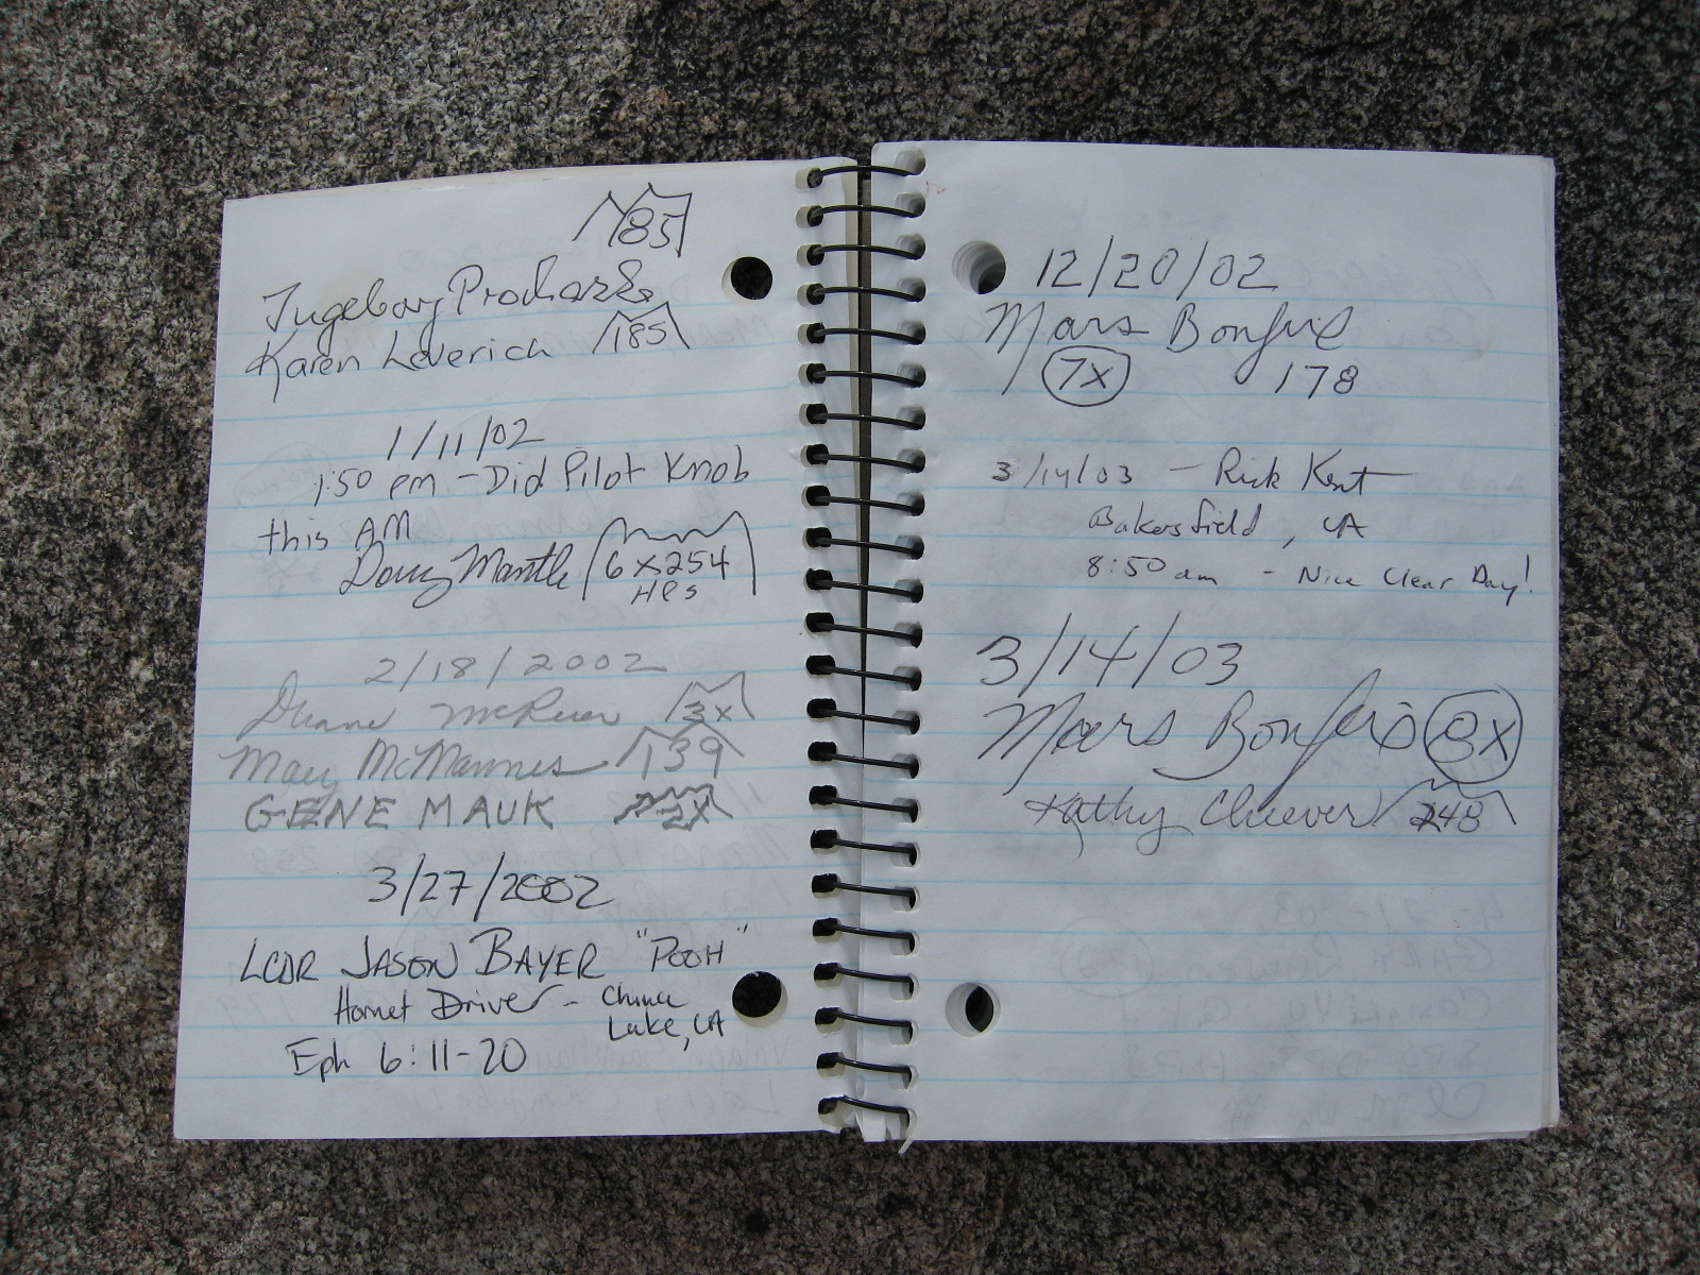 185
Ingeborg Prochazka
Karen Leverich 185
1/11/02
1:50 pm - Did Pilot Knob
this AM
Doug Mantle 6x254
HPS
2/18/2002
Duane McRuer 3x
Mary McMannes 139
GENE MAUK 2X
3/27/2002
LCDR JASON BAYER "POOH"
Hornet Driver - China
Lake, CA
Eph 6:11-20
12/20/02
Mars Bonfire
7x 178
3/14/03 - Rick Kent
Bakersfield, CA
8:50 am - Nice Clear Day!
3/14/03
Mars Bonfire 8x
Kathy Cheever 248